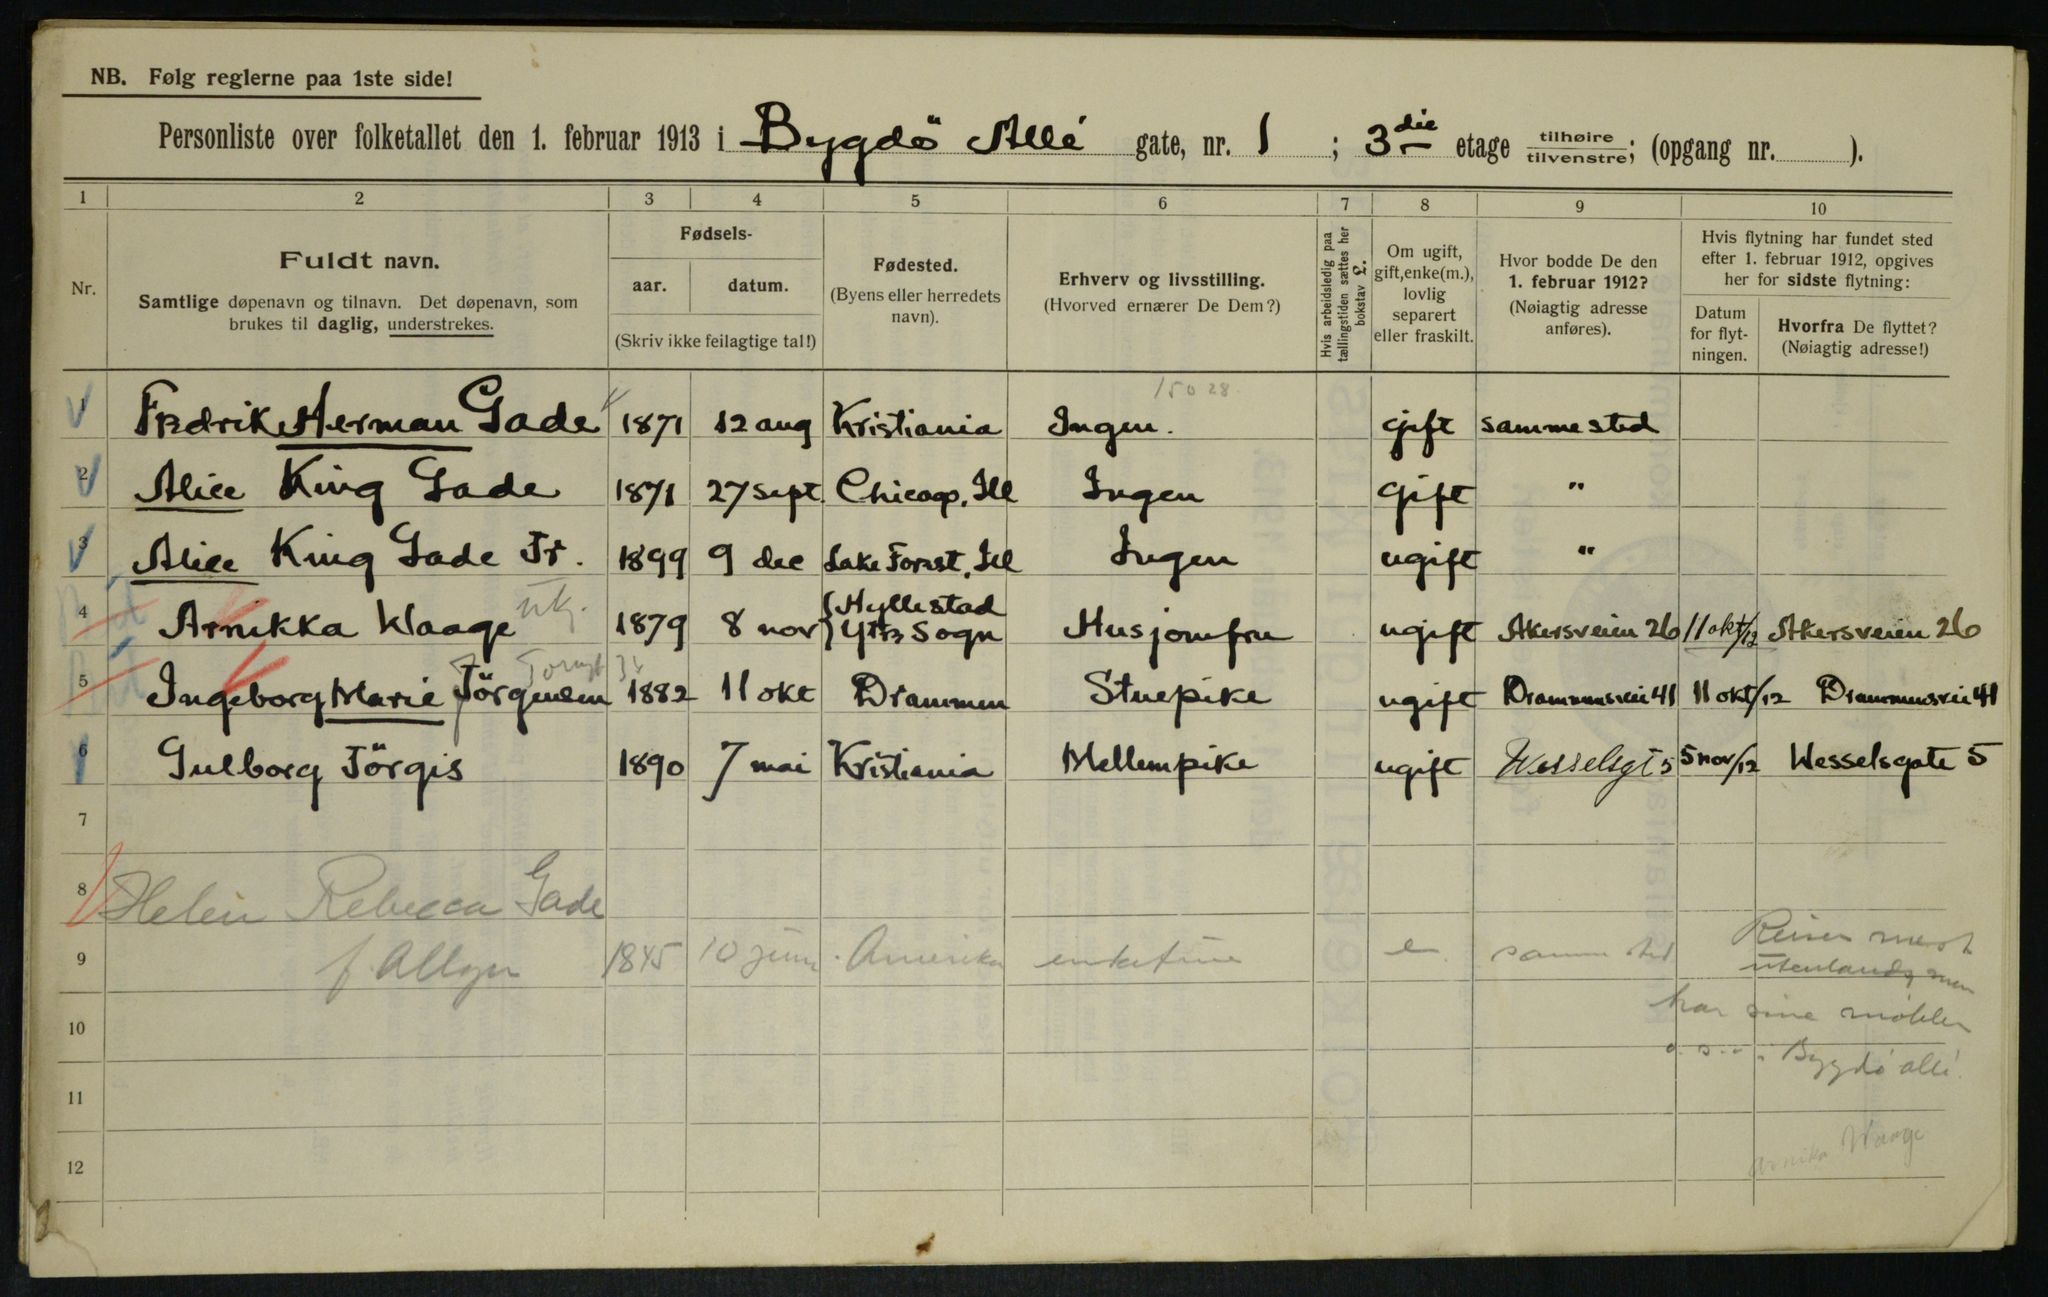 NB. Følg reglerne paa 1ste side!
Personliste over folketallet den 1. februar 1913 i Bygdö Allé gate, nr. 1 ; 3die etage tilhøire/tilvenstre; (opgang nr. ).
1 2 3 4 5 6 7 8 9 10
Nr.
Fuldt navn.
Samtlige døpenavn og tilnavn. Det døpenavn, som
brukes til daglig, understrekes.
Fødsels-
aar. datum.
(Skriv ikke feilagtige tal!)
Fødested.
(Byens eller herredets
navn).
Erhverv og livsstilling.
(Hvorved ernærer De Dem?)
Hvis arbeidsledig paa
tællingstiden sættes her
bokstav £.
Om ugift,
gift, enke(m.),
lovlig
separert
eller fraskilt.
Hvor bodde De den
1. februar 1912?
(Nøiagtig adresse
anføres).
Hvis flytning har fundet sted
efter 1. februar 1912, opgives
her for sidste flytning:
Datum
for flyt-
ningen.
Hvorfra De flyttet?
(Nøiagtig adresse!)
15028.
1 Fredrik Herman Gade 1871 12 aug Kristiania Ingen. gift samme sted
2 Alice King Gade 1871 27 sept. Chicago, Ill Ingen gift "
3 Alice King Gade Jr. 1899 9 dec Lake Forest, Ill Ingen ugift "
4 Arnikka Waage 1879 8 nov Hyllestad Ytre Sogn Husjomfru ugift Akersveien 26 11 okt/12 Akersveien 26
5 Ingeborg Marie Jörgensen 1882 11 okt Drammen Stuepike ugift Drammensvei 41 11 okt/12 Drammensvei 41
6 Gulborg Jörgis 1890 7 mai Kristiania Mellempike ugift Wesselsgt 5 5 nov/12 Wesselsgate 5
7
8 Helen Rebecca Gade
9 f. Allyn 1845 10 juni Amerika enkefrue e samme sted Reiser mest
utenlands, men
10 har sine møbler
o. s. v. i Bygdö allé.
11
12 Arnika Waage